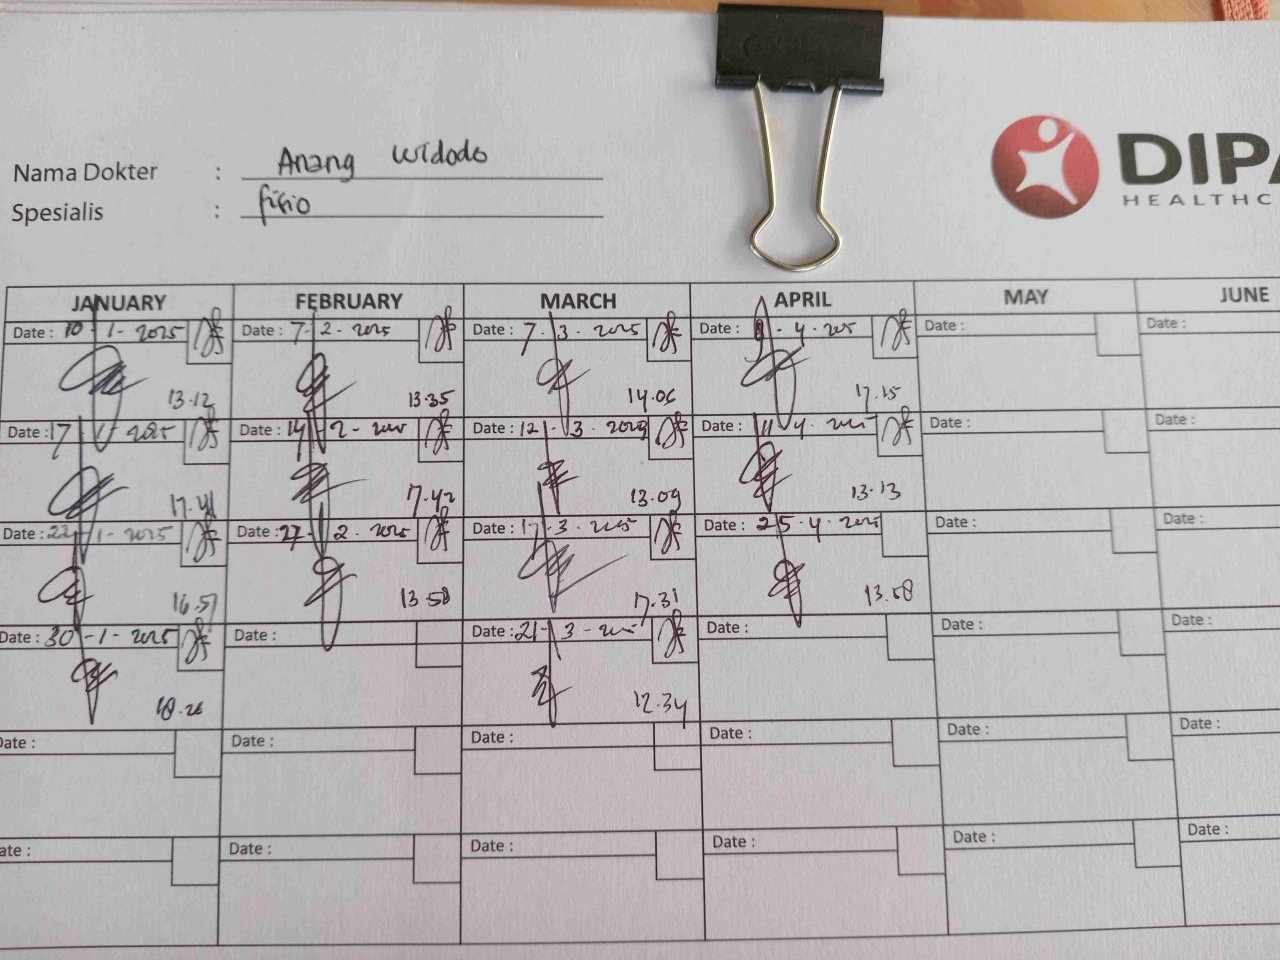 Nama Dokter : Anang Widodo
Spesialis : fisio
DIPA
HEALTHC
JANUARY FEBRUARY MARCH APRIL MAY JUNE
Date : 10-1-2025 Date : 7-2-2025 Date : 7-3-2025 Date : -4-2025 Date : Date :
13.12 13.35 14.06 17.15
Date : 17-1-2025 Date : 14-2-2025 Date : 12-3-2025 Date : 11-4-2025 Date : Date :
17.41 17.42 13.09 13.13
Date : 22-1-2025 Date : 27-2-2025 Date : 17-3-2025 Date : 25-4-2025 Date : Date :
16.57 13.58 17.31 13.58
Date : 30-1-2025 Date : Date : 21-3-2025 Date : Date : Date :
18.26 12.34
Date : Date : Date : Date : Date : Date :
Date : Date : Date : Date : Date : Date :